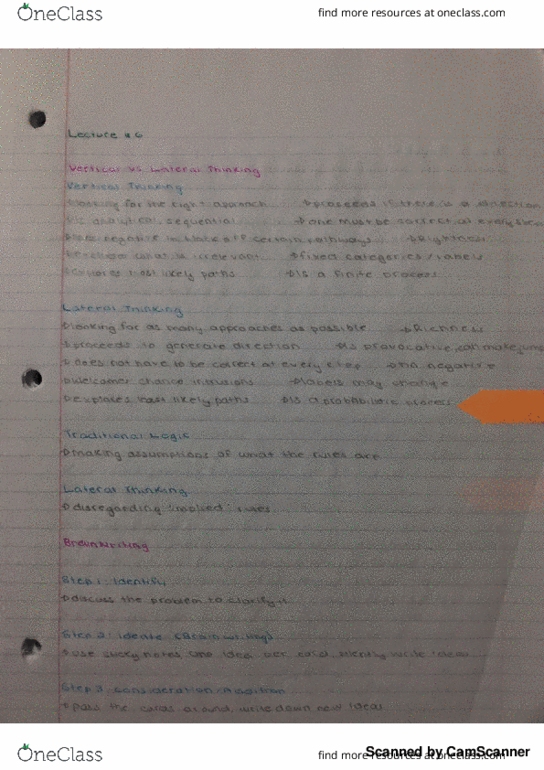 OneClass find more resources at oneclass.com
Lecture #6
Vertical vs Lateral Thinking
Vertical Thinking
looking for the right approach proceeds if there is a direction
is analytical, sequential one must be correct at every step
negative to block off certain pathways Rightness
what is irrelevant fixed categories/labels
explores most likely paths is a finite process
Lateral Thinking
looking for as many approaches as possible Richness
proceeds to generate direction is provocative, can make jumps
does not have to be correct at every step no negative
welcomes chance intrusions labels may change
explores least likely paths is a probabilistic process
Traditional Logic
making assumptions of what the rules are
Lateral Thinking
disregarding "implied" rules
Brainwriting
Step 1: Identify
discuss the problem to clarify it
Step 2: Ideate (Brainwriting)
use sticky notes, one idea per card, silently write ideas
Step 3: consideration/Addition
pass the cards around, write down new ideas
OneClass find more resources at oneclass.com
Scanned by CamScanner